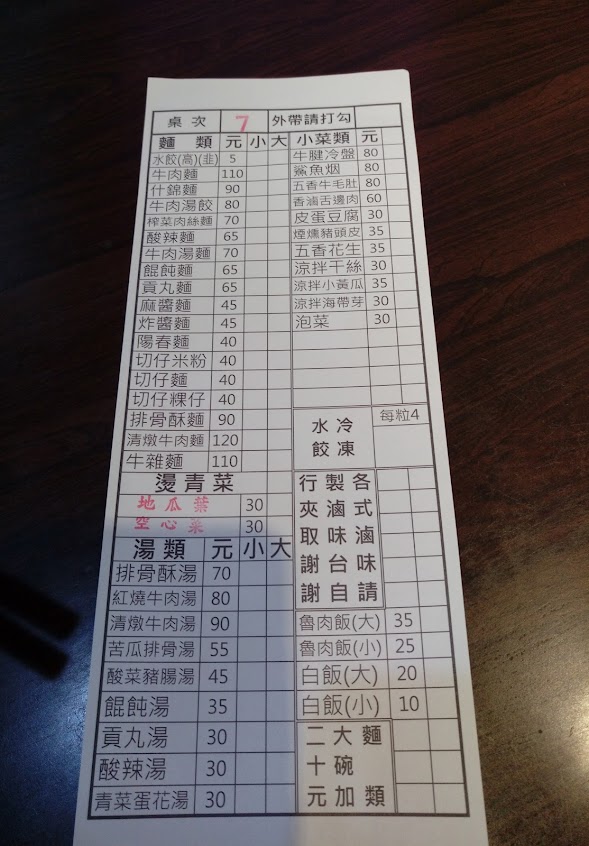 桌次 7 外帶請打勾
麵類 元 小 大
水餃(高)(韭) 5
牛肉麵 110
什錦麵 90
牛肉湯餃 80
榨菜肉絲麵 70
酸辣麵 65
牛肉湯麵 70
餛飩麵 65
貢丸麵 65
麻醬麵 45
炸醬麵 45
陽春麵 40
切仔米粉 40
切仔麵 40
切仔粿仔 40
排骨酥麵 90
清燉牛肉麵 120
牛雜麵 110
燙青菜
地瓜葉 30
空心菜 30
湯類 元 小 大
排骨酥湯 70
紅燒牛肉湯 80
清燉牛肉湯 90
苦瓜排骨湯 55
酸菜豬腸湯 45
餛飩湯 35
貢丸湯 30
酸辣湯 30
青菜蛋花湯 30
小菜類 元
牛腱冷盤 80
鯊魚烟 80
五香牛毛肚 80
香滷舌邊肉 60
皮蛋豆腐 30
煙燻豬頭皮 35
五香花生 35
涼拌干絲 30
涼拌小黃瓜 35
涼拌海帶芽 30
泡菜 30
冷凍
水餃
每粒4
各式滷味請
製滷味台自
行夾取謝謝
魯肉飯(大) 35
魯肉飯(小) 25
白飯(大) 20
白飯(小) 10
麵類
大碗加
二十元